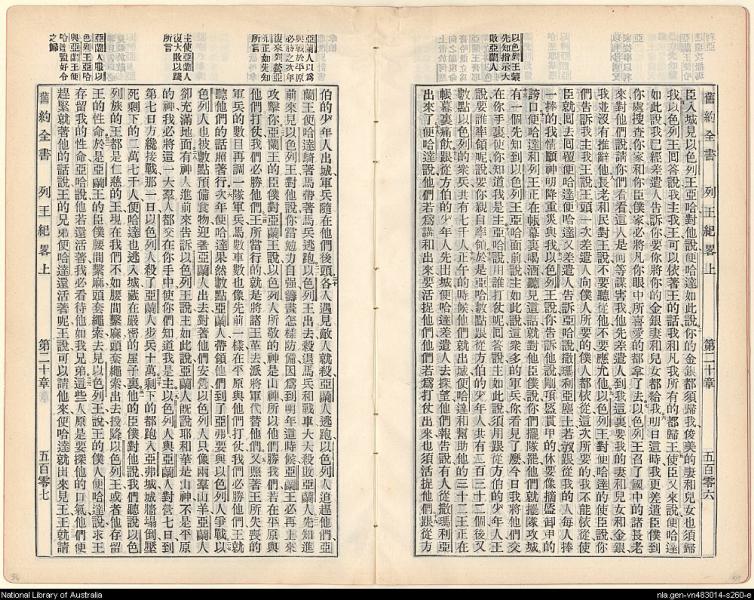 舊約全書 列王紀畧上 第二十章 五百零六
以色列王蒙
先知指示大
敗亞蘭人
臣入城見以色列王亞哈對他說便哈達如此說你的金銀都須歸我俊美的妻和兒女也須歸
我以色列王回答說我主我王可以依著王的話我和凡我所有的都歸王使臣又來說便哈達
如此說我已經差遣人告訴你要你將你的金銀妻和兒女都給我明日這時我更差遣臣僕到
你處搜查你家和你臣僕家必將凡你眼中所喜愛的都拿了去以色列王召了國中的諸長老
來對他們說請你們看看這人是何等謀害我他先差遣人到我這裏要我的妻和兒女和金銀
我並沒有推辭他長老和民對王說不要聽從他不要應允他以色列王對便哈達的使臣說你
們告訴我主我王說王頭一次差遣人向僕人所要的僕人都依從這次所要的我不能依從使
臣就回去回覆便哈達
有一個先知到以色列王亞哈面前說主如此說這衆多的軍兵你看見了麽今日我將他們交
在你手裏使你知道我是主亞哈說用誰打仗呢回答說主如此說須用跟從方伯的少年人王
說要誰率領呢說要你親自率領於是亞哈數點跟從方伯的少年人共有二百三十二個後又
數點以色列的衆兵共有七千人正午的時候他們就出城便哈達和幫助他的三十二王正在
帳幕裏痛飲跟從方伯的少年人先出城便哈達差遣人去探望他們報告說有人從撒瑪利亞
出來了便哈達說他們若爲講和出來要活捉他們他們若爲打仗出來也須活捉他們跟從方
亞蘭人以爲
與戰於平原
必勝之次年
復來到於亞
弗正如先知
所言
主使亞蘭人
復大敗以踐
所言
亞蘭人敗以
色列王亞哈
與亞蘭王便
哈達盟好令
之歸
伯的少年人出城軍兵隨在他們後頭各人遇見敵人就殺亞蘭人逃跑以色列人追趕他們亞
蘭王便哈達騎著馬帶著馬兵逃跑以色列王出去殺退馬兵和戰車大大殺敗亞蘭人先知進
前來見以色列王對他說你當勉力自強籌畫怎樣防備因爲到明年這時候亞蘭王必再上來
攻擊你亞蘭王的臣僕對亞蘭王說以色列人所敬的神是山神所以他們勝我們若在平原與
他們打仗我們必勝他們王所當行的就是將諸王革去派將軍代替他們又照著王所失喪的
軍兵的數目再調一隊軍兵馬數車數也像先前一樣在平原與他們打仗我們必勝他們王就
聽他們的話照著行次年便哈達果然數點亞蘭人帶領他們到了亞弗要與以色列人爭戰以
色列人也被數點預備食物迎著亞蘭人出去對著他們安營以色列人只像兩羣山羊亞蘭人
卻充滿地面有神人進前來告訴以色列王說主如此說亞蘭人旣說耶和華是山神不是平原
的神我必將這一大羣人都交在你手中使你們知道我是主以色列人與亞蘭人對營七日到
第七日方纔接戰那一日以色列人殺了亞蘭人步兵十萬剩下的都跑入亞弗城城牆場倒壓
死剩下的二萬七千人便哈達也逃入城藏在嚴密的屋子裏他的臣僕對他說我們聽說以色
列族的王都是仁慈的王現在我們不如腰間繫麻頭套繩索出去投降以色列王或者他存留
王的性命於是亞蘭王的臣僕腰間繫麻頭套繩索去見以色列王說王的僕人便哈達說求王
存留我的性命亞哈說他還活著我必看待他如我兄弟這些人原是要探他的口氣他們便
趕緊就著他的話說王的兄弟便哈達還活著呢王說可以請他來便哈達就出來見王王就請
舊約全書 列王紀畧上 第二十章 五百零七
National Library of Australia
nla.gen-vn483014-s260-e